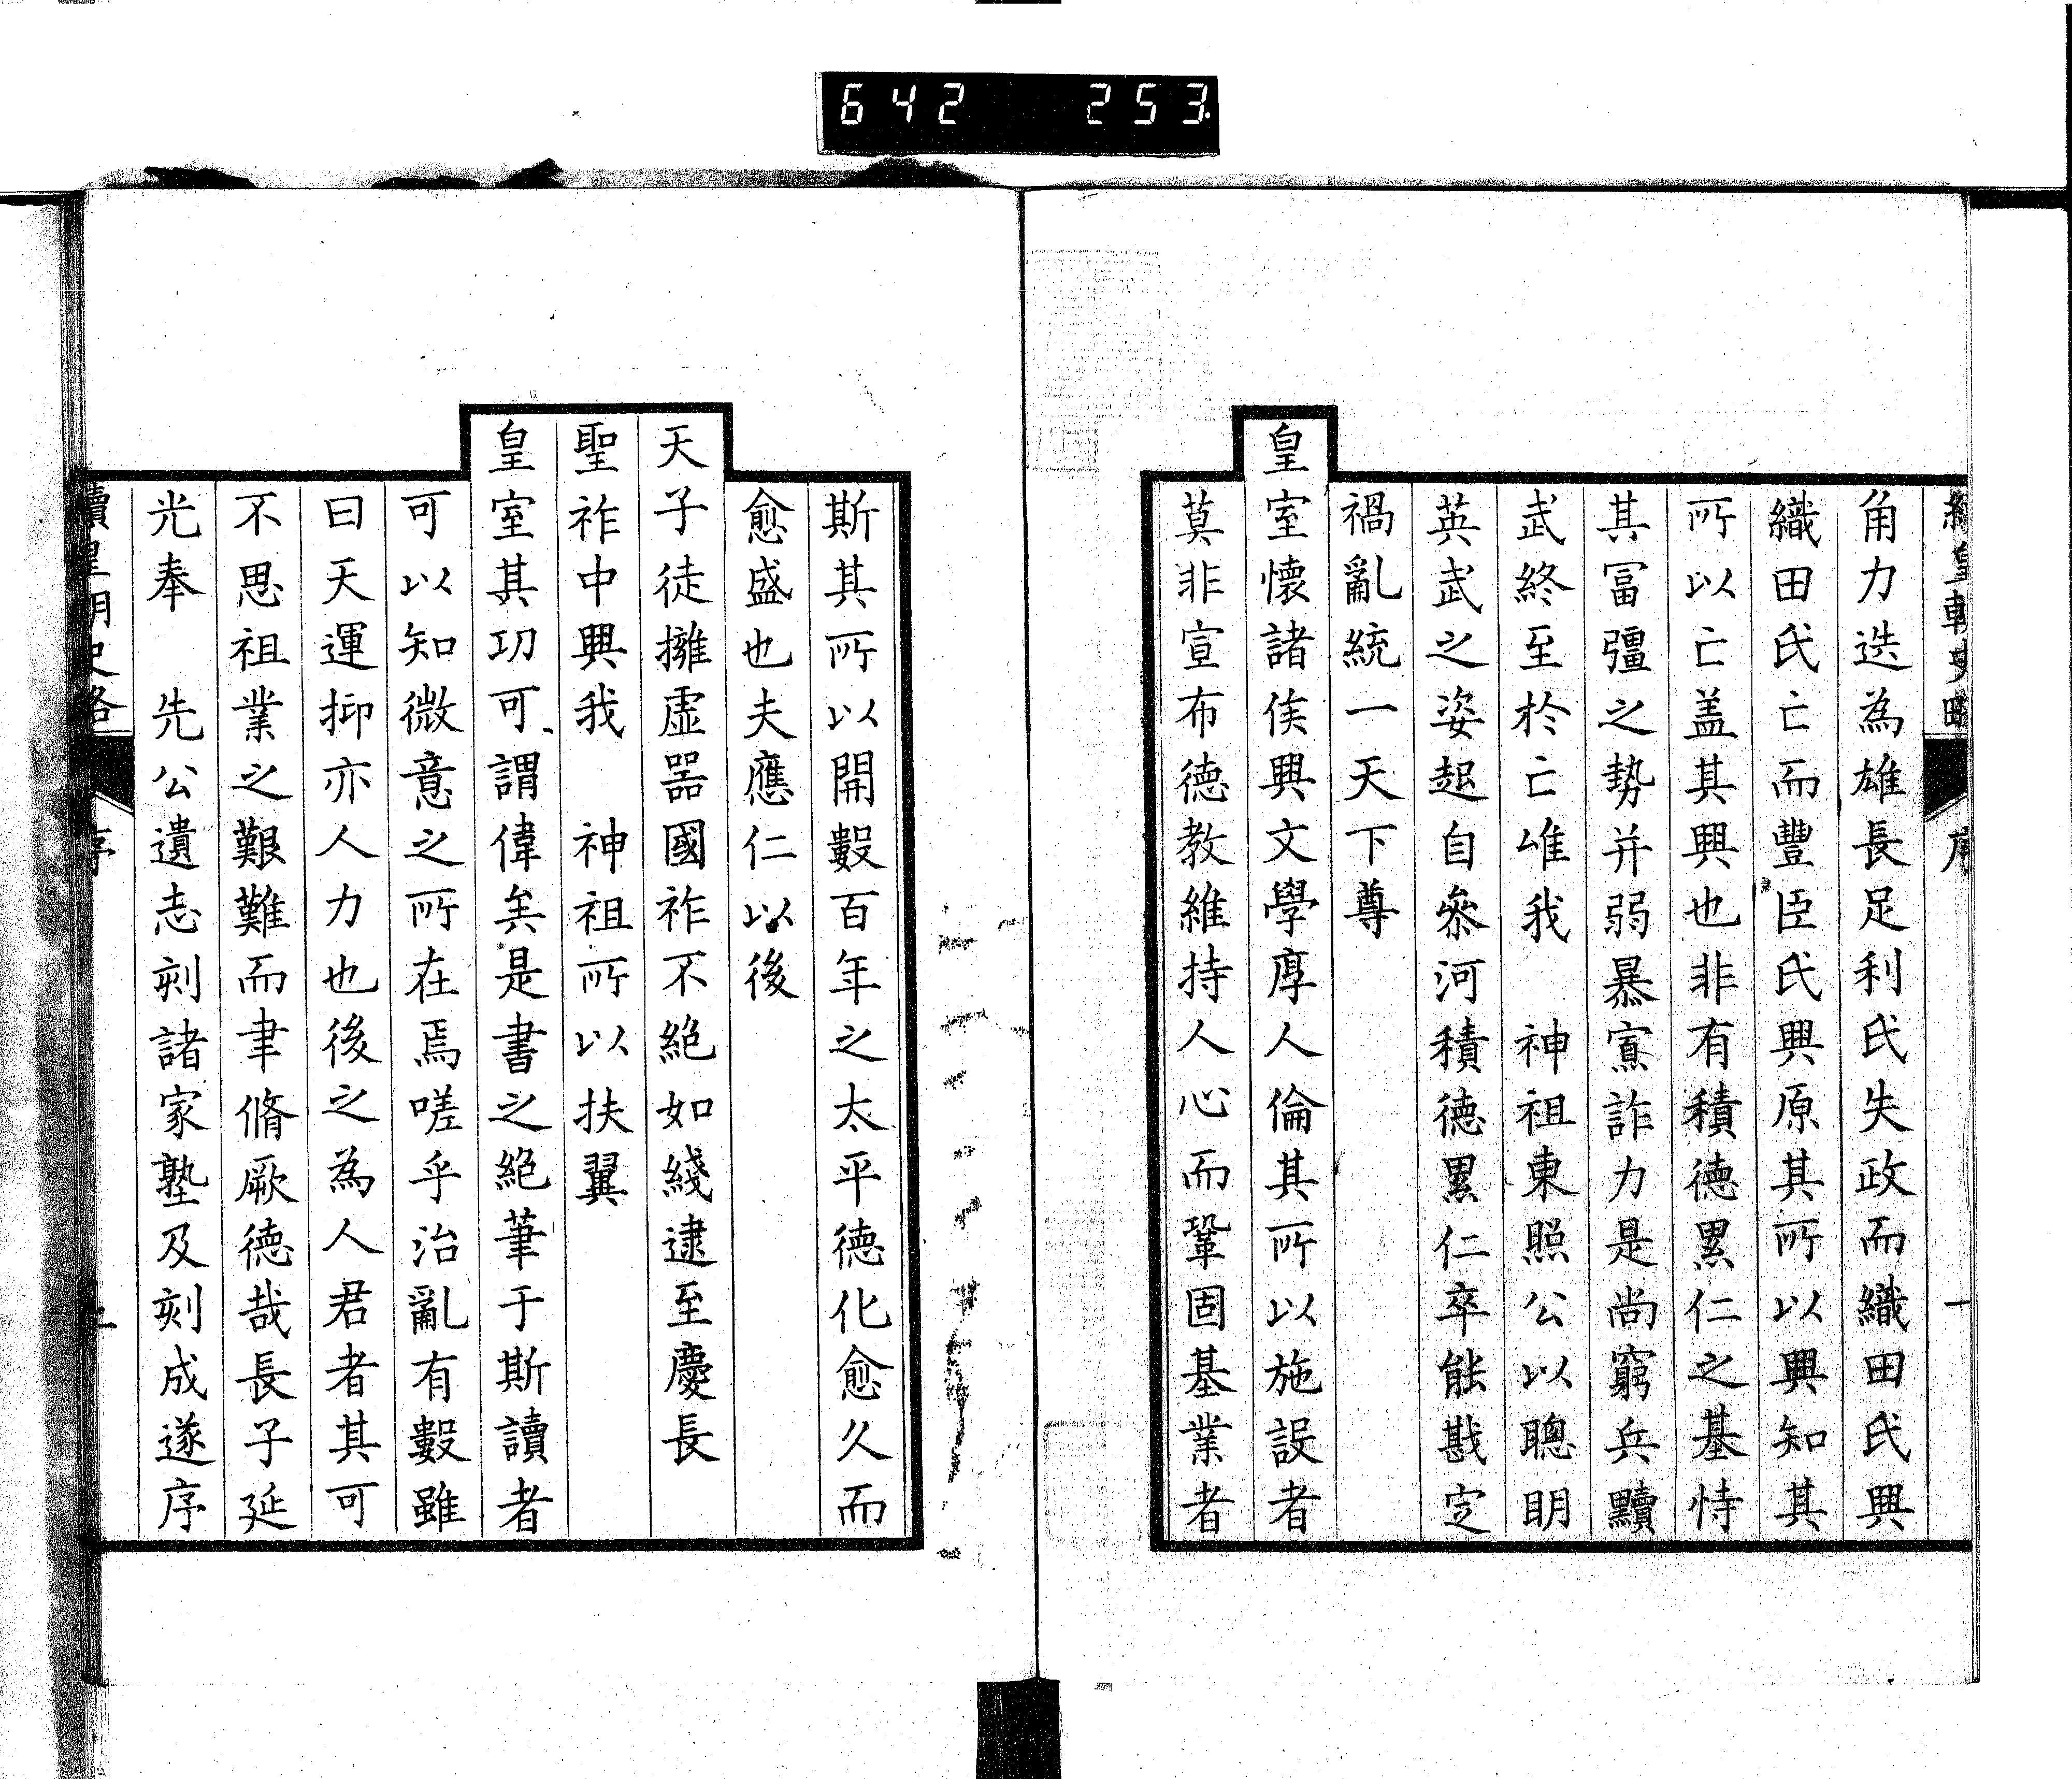 642 253
續皇朝史略 序 一
角力迭為雄長足利氏失政而織田氏興
織田氏亡而豐臣氏興原其所以興知其
所以亡盖其興也非有積德累仁之基恃
其冨彊之勢并弱暴寡詐力是尚窮兵黷
武終至於亡唯我 神祖東照公以聰明
英武之姿起自參河積德累仁卒能戡定
禍亂統一天下尊
皇室懷諸侯興文學厚人倫其所以施設者
莫非宣布德教維持人心而鞏固基業者
斯其所以開數百年之太平德化愈久而
愈盛也夫應仁以後
天子徒擁虛器國祚不絕如綫逮至慶長
聖祚中興我 神祖所以扶翼
皇室其功可謂偉矣是書之絕筆于斯讀者
可以知微意之所在焉嗟乎治亂有數雖
曰天運抑亦人力也後之為人君者其可
不思祖業之艱難而聿脩厥德哉長子延
光奉 先公遺志刻諸家塾及刻成遂序
續皇朝史略 序